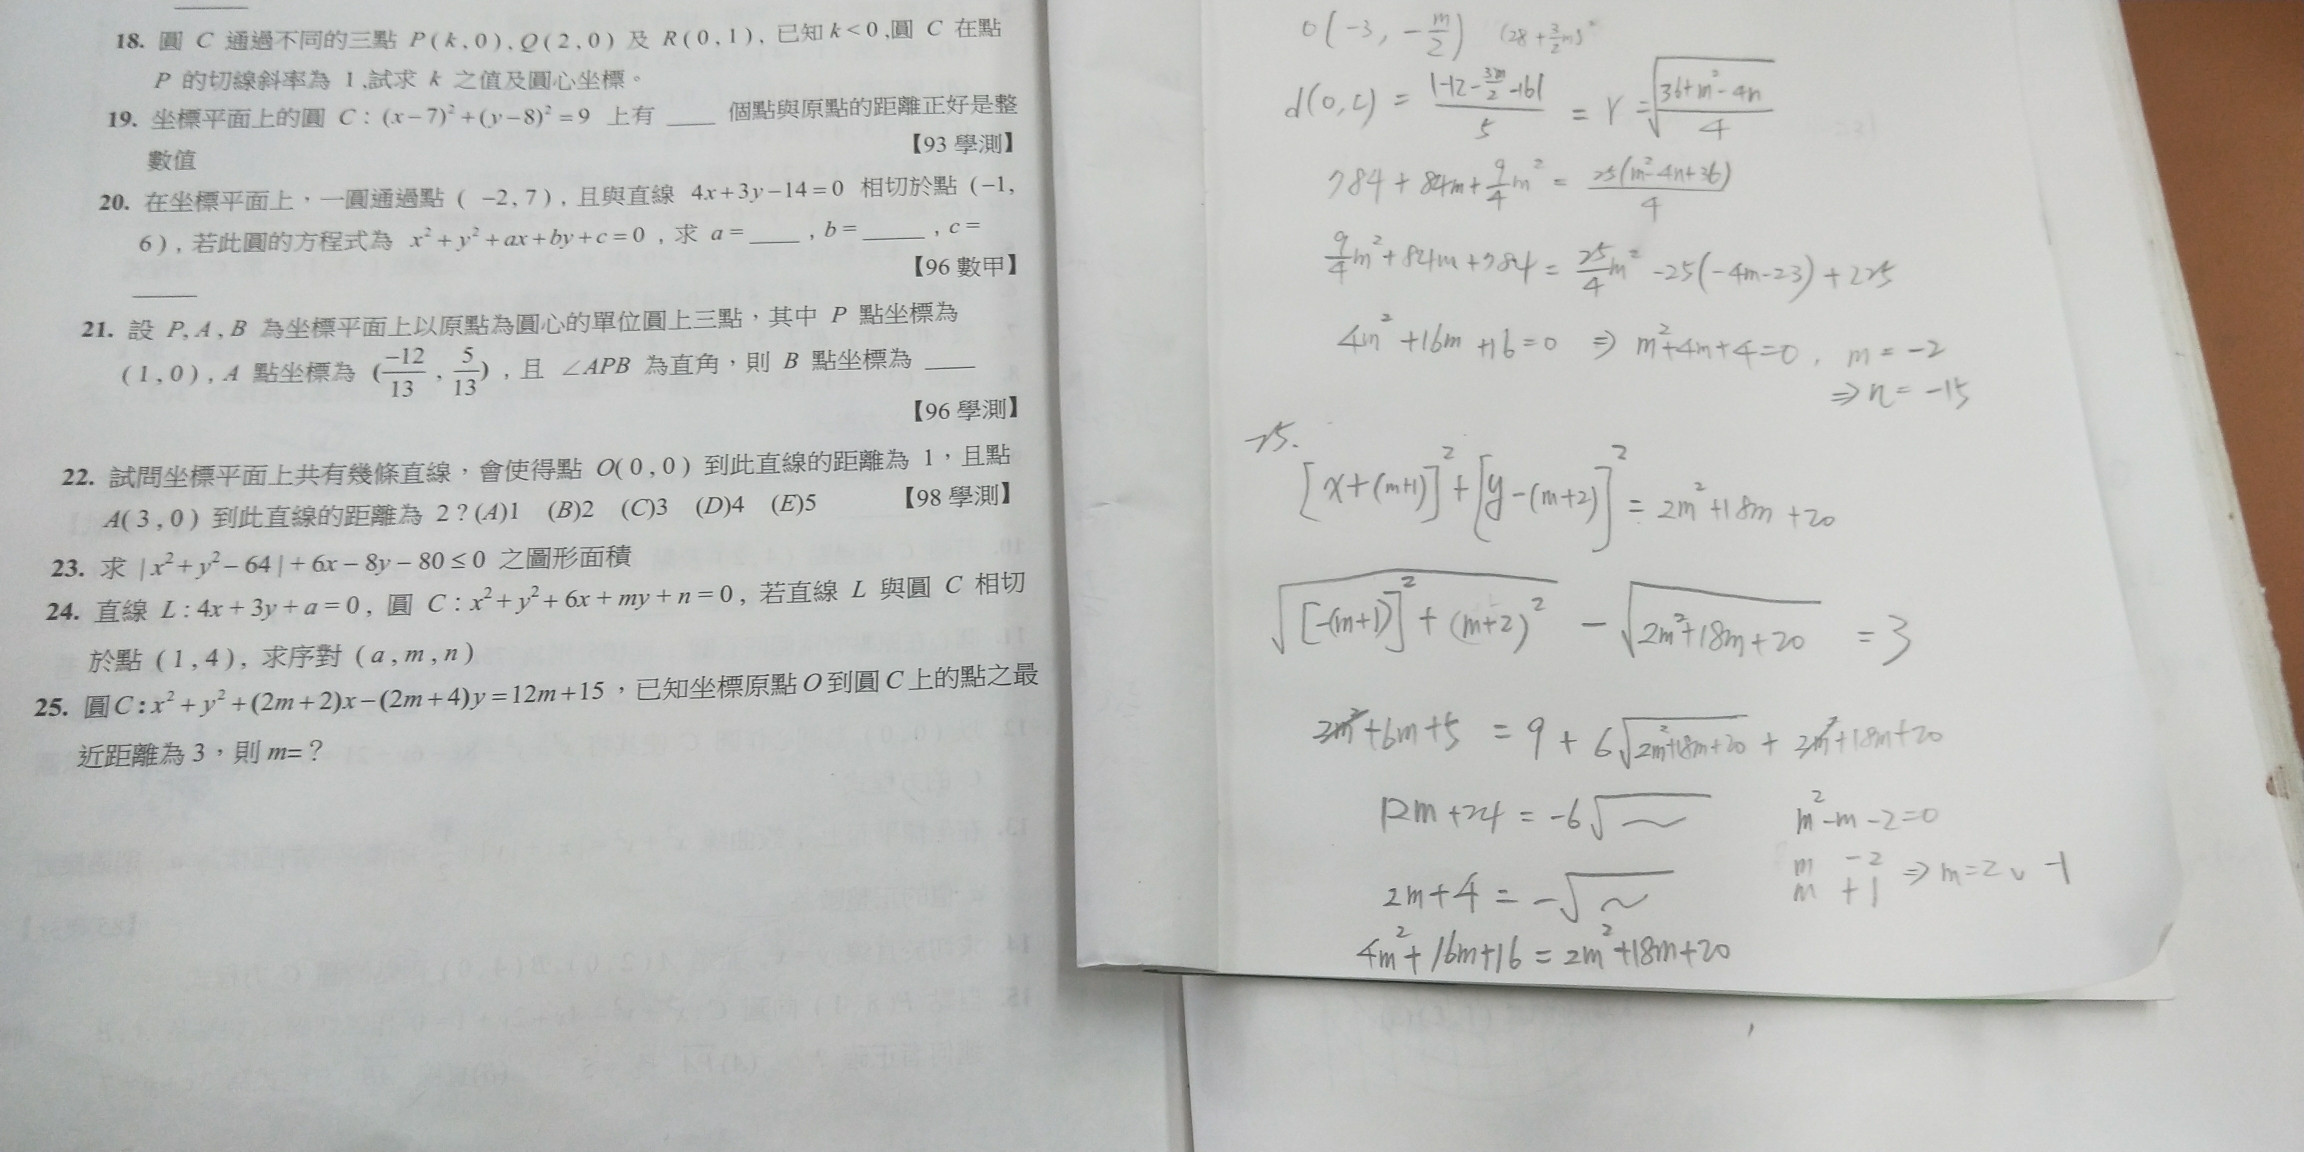 18. 圓 C 通過不同的三點 P(k,0),Q(2,0) 及 R(0,1), 已知 k<0,圓 C 在點
P 的切線斜率為 1,試求 k 之值及圓心坐標。
19. 坐標平面上的圓 C：(x−7)²+(y−8)²=9 上有 ____ 個點與原點的距離正好是整
數值 【93 學測】
20. 在坐標平面上，一圓通過點 ( −2,7), 且與直線 4x+3y−14=0 相切於點 (−1,
6), 若此圓的方程式為 x²+y²+ax+by+c=0 , 求 a= ____ , b= ____ , c=
____ 【96 數甲】
21. 設 P,A,B 為坐標平面上以原點為圓心的單位圓上三點，其中 P 點坐標為
(1,0), A 點坐標為 (−12/13, 5/13), 且 ∠APB 為直角，則 B 點坐標為 ____
【96 學測】
22. 試問坐標平面上共有幾條直線，會使得點 O(0,0) 到此直線的距離為 1，且點
A(3,0) 到此直線的距離為 2？(A)1 (B)2 (C)3 (D)4 (E)5 【98 學測】
23. 求 |x²+y²−64|+6x−8y−80≤0 之圖形面積
24. 直線 L:4x+3y+a=0, 圓 C：x²+y²+6x+my+n=0, 若直線 L 與圓 C 相切
於點 (1,4), 求序對 (a,m,n)
25. 圓C:x²+y²+(2m+2)x−(2m+4)y=12m+15，已知坐標原點O到圓C上的點之最
近距離為3，則m=？
O(-3, -m/2) (28+3/2m)²
d(O,L) = |-12-3m/2-16|/5 = r = √(36+m²-4n)/4
784+84m+9/4m² = 25(m²-4n+36)/4
9/4m²+84m+784 = 25/4m²-25(-4m-23)+225
4m²+16m+16=0 ⇒ m²+4m+4=0, m=-2
⇒n=-15
25.
[x+(m+1)]²+[y-(m+2)]² = 2m²+18m+20
√([-(m+1)]²+(m+2)²) - √(2m²+18m+20) = 3
2m²+6m+5 = 9+6√(2m²+18m+20)+2m²+18m+20
12m+24 = -6√~
m²-m-2=0
2m+4 = -√~
m -2
m +1 ⇒ m=2 v -1
4m²+16m+16 = 2m²+18m+20